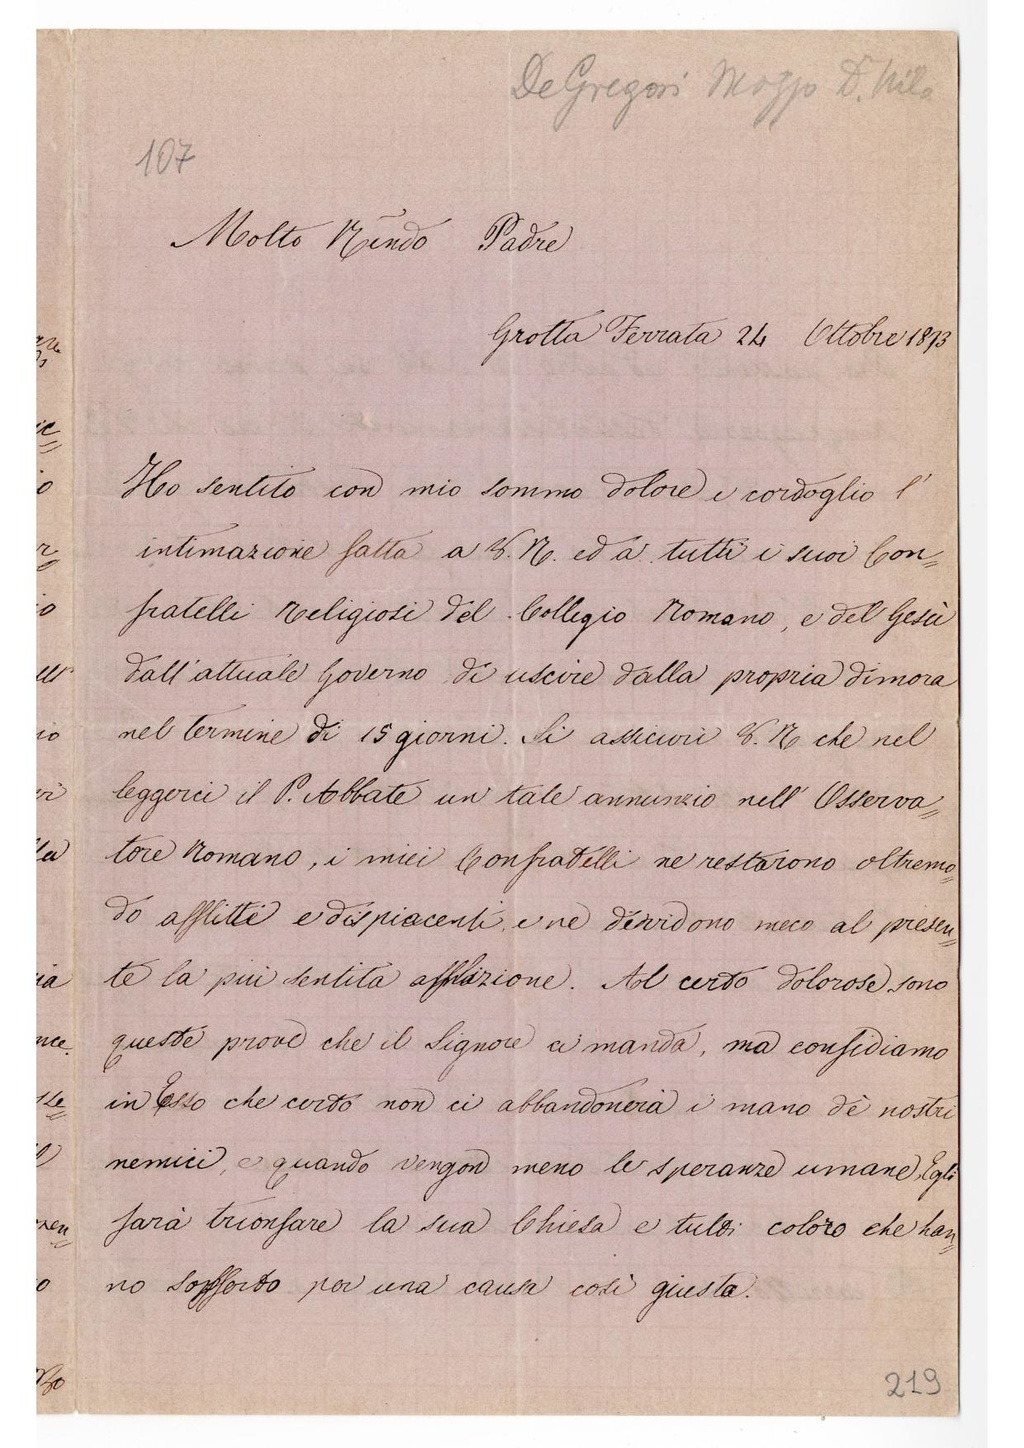 De Gregori D. Nilo
107
Molto Rēndo Padre
Grotta Ferrata 24 Ottobre 1873
Ho sentito con mio sommo dolore e cordoglio l'
intimazione fatta a V. R. ed a tutti i suoi Con=
fratelli Religiosi del Collegio Romano, e del Gesù
dall'attuale Governo di uscire dalla propria dimora
nel termine di 15 giorni. Si assicuri V. R che nel
leggerci il P. Abbate un tale annunzio nell' Osserva=
tore Romano, i miei Confratelli ne restarono oltremo=
do afflitti e dispiacenti, e ne dividono meco al presen=
te la più sentita afflizione. Al certo dolorose sono
queste prove che il Signore ci manda, ma confidiamo
in Esso che certo non ci abbandonerà i mano de nostri
nemici, e quando vengon meno le speranze umane, Egli
farà trionfare la sua Chiesa e tutti coloro che han=
no sofferto per una causa così giusta.
219